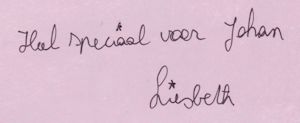 Heel speciaal voor Johan
Liesbeth